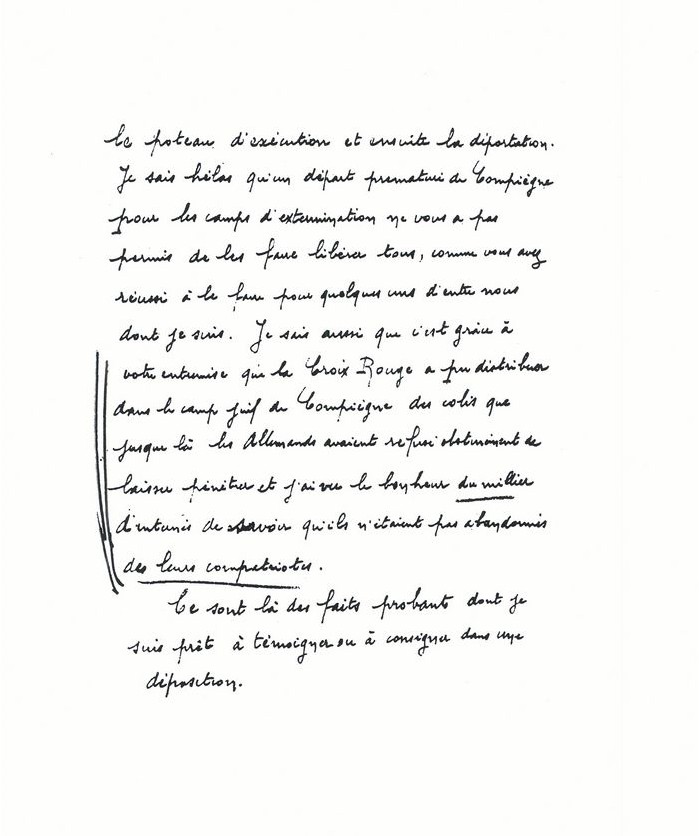 le poteau d'exécution et ensuite la déportation.
Je sais hélas qu'un départ prématuré de Compiègne
pour les camps d'extermination ne vous a pas
permis de les faire libérer tous, comme vous avez
réussi à le faire pour quelques uns d'entre nous
dont je suis. Je sais aussi que c'est grâce à
votre entremise que la Croix Rouge a pu distribuer
dans le camp juif de Compiègne des colis que
jusque là les Allemands avaient refusé obstinément de
laisser pénétrer et j'ai vu le bonheur du millier
d'internés de savoir qu'ils n'étaient pas abandonnés
des leurs compatriotes.
Ce sont là des faits probants dont je
suis prêt à témoigner ou à consigner dans une
déposition.